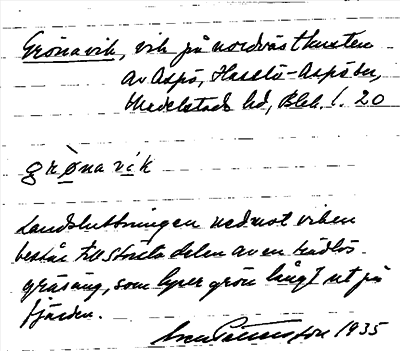 Grönavik, vik på nordvästkusten
av Aspö, Hasslö-Aspö sn,
Medelstads hd, Blek. l. 20
grønavik
Landsluttningen ned mot viken
består till största delen av en trädlös
gräsäng, som lyser grön långt ut på
fjärden.
1935